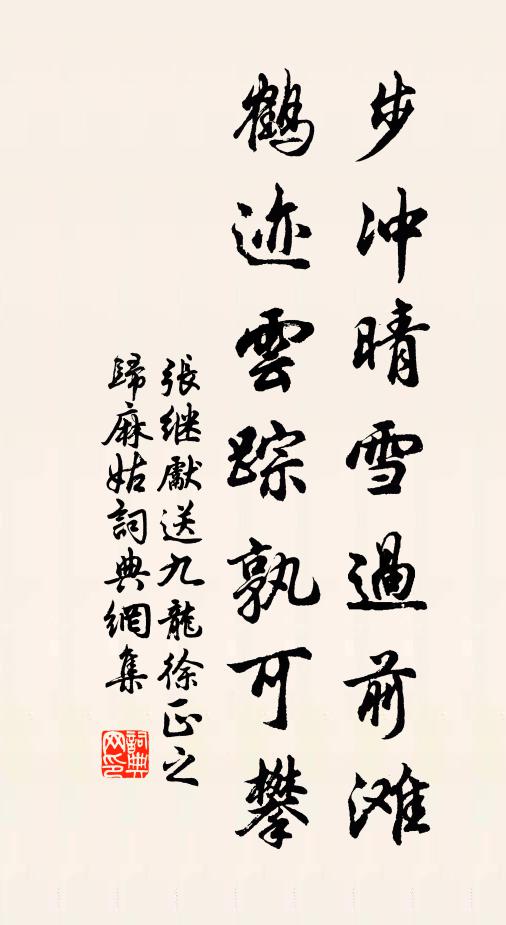 步冲晴雪過前滩
鹤迹雲踪孰可攀
張继獻送九龍徐正之
歸麻姑詞典網集
詞典网印